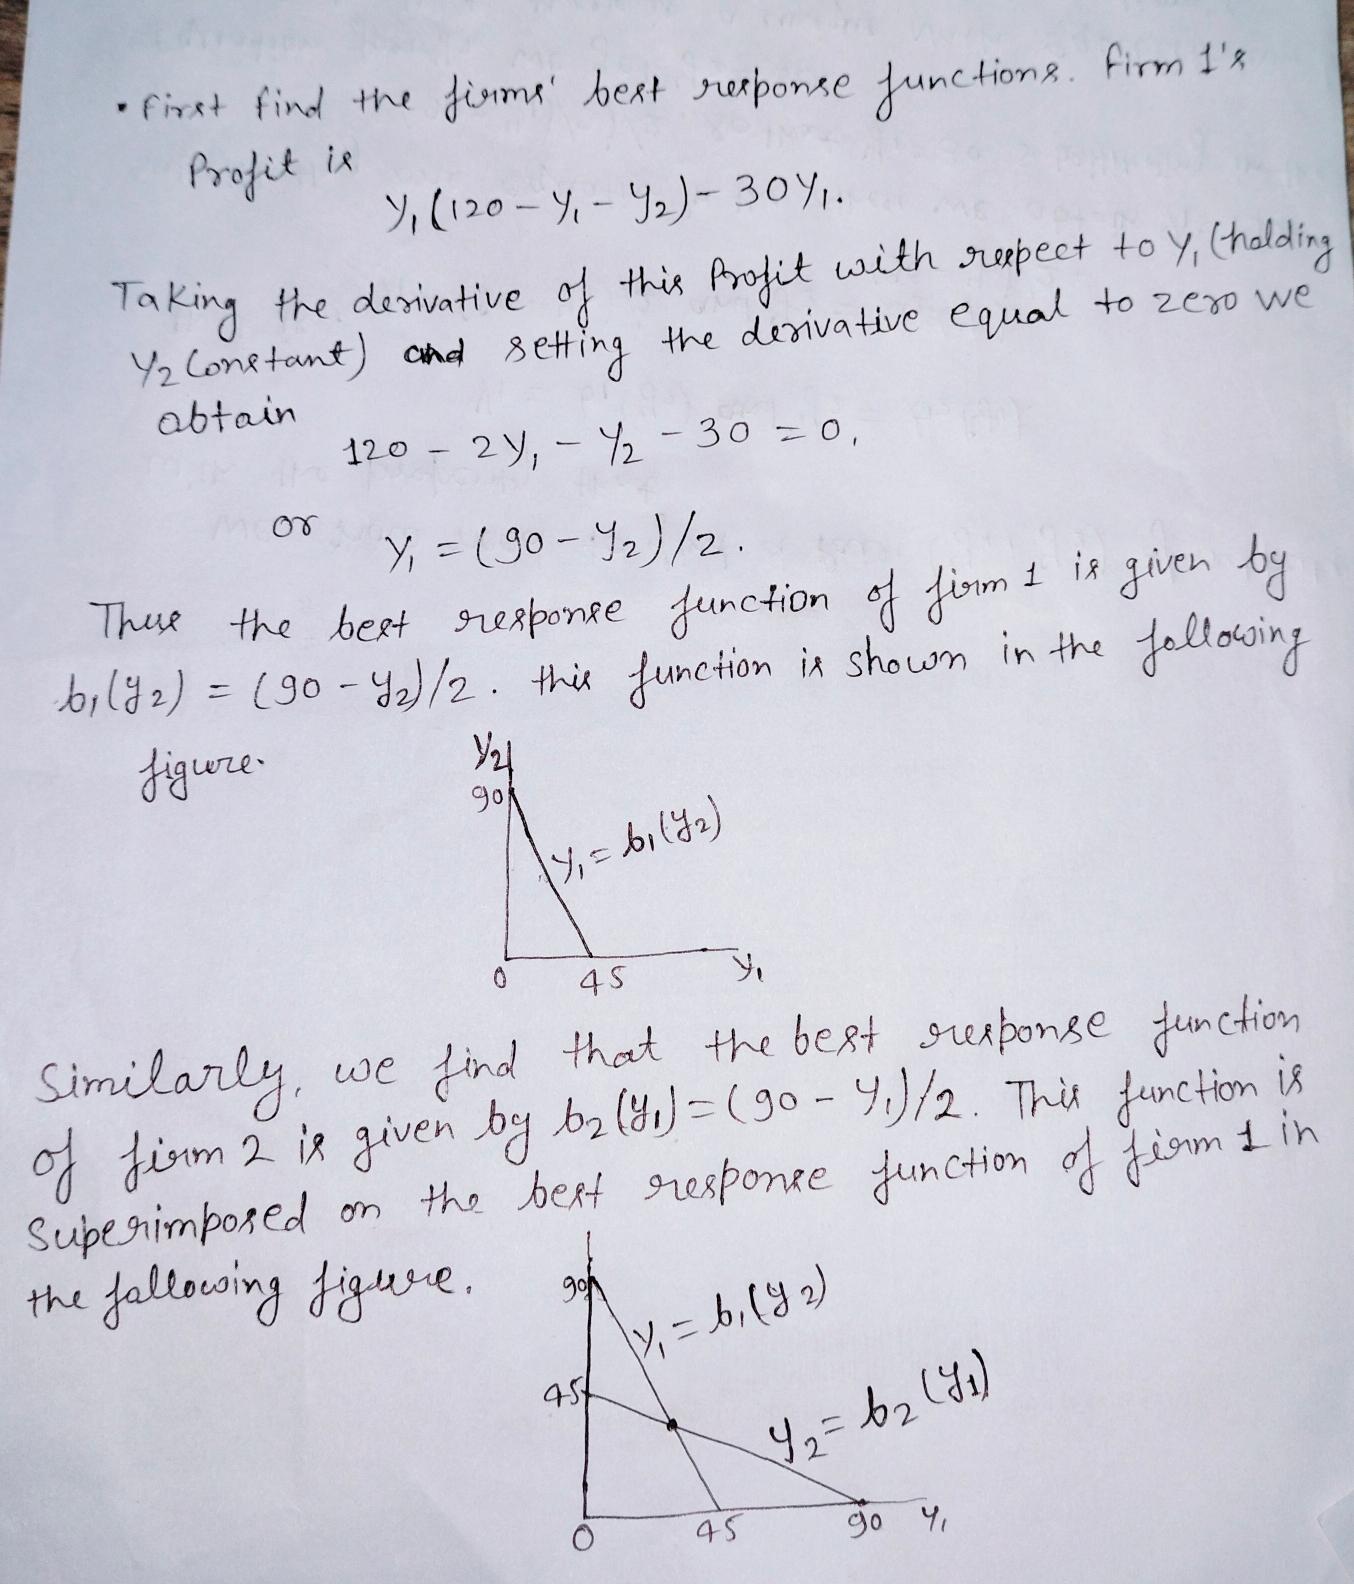 • First find the firms' best response functions. Firm 1's
Profit is
y₁(120 – y₁ – y₂) – 30y₁.
Taking the derivative of this Profit with respect to y₁ (holding
y₂ Constant) and setting the derivative equal to zero we
obtain
120 – 2y₁ – y₂ – 30 = 0,
or
y₁ = (90 – y₂)/2.
Thus the best response function of firm 1 is given by
b₁(y₂) = (90 – y₂)/2. this function is shown in the following
figure.
y₂
90
y₁ = b₁(y₂)
0 45 y₁
Similarly, we find that the best response function
of firm 2 is given by b₂(y₁) = (90 – y₁)/2. This function is
Superimposed on the best response function of firm 1 in
the following figure.
90
y₁ = b₁(y₂)
45
y₂ = b₂(y₁)
0 45 90 y₁